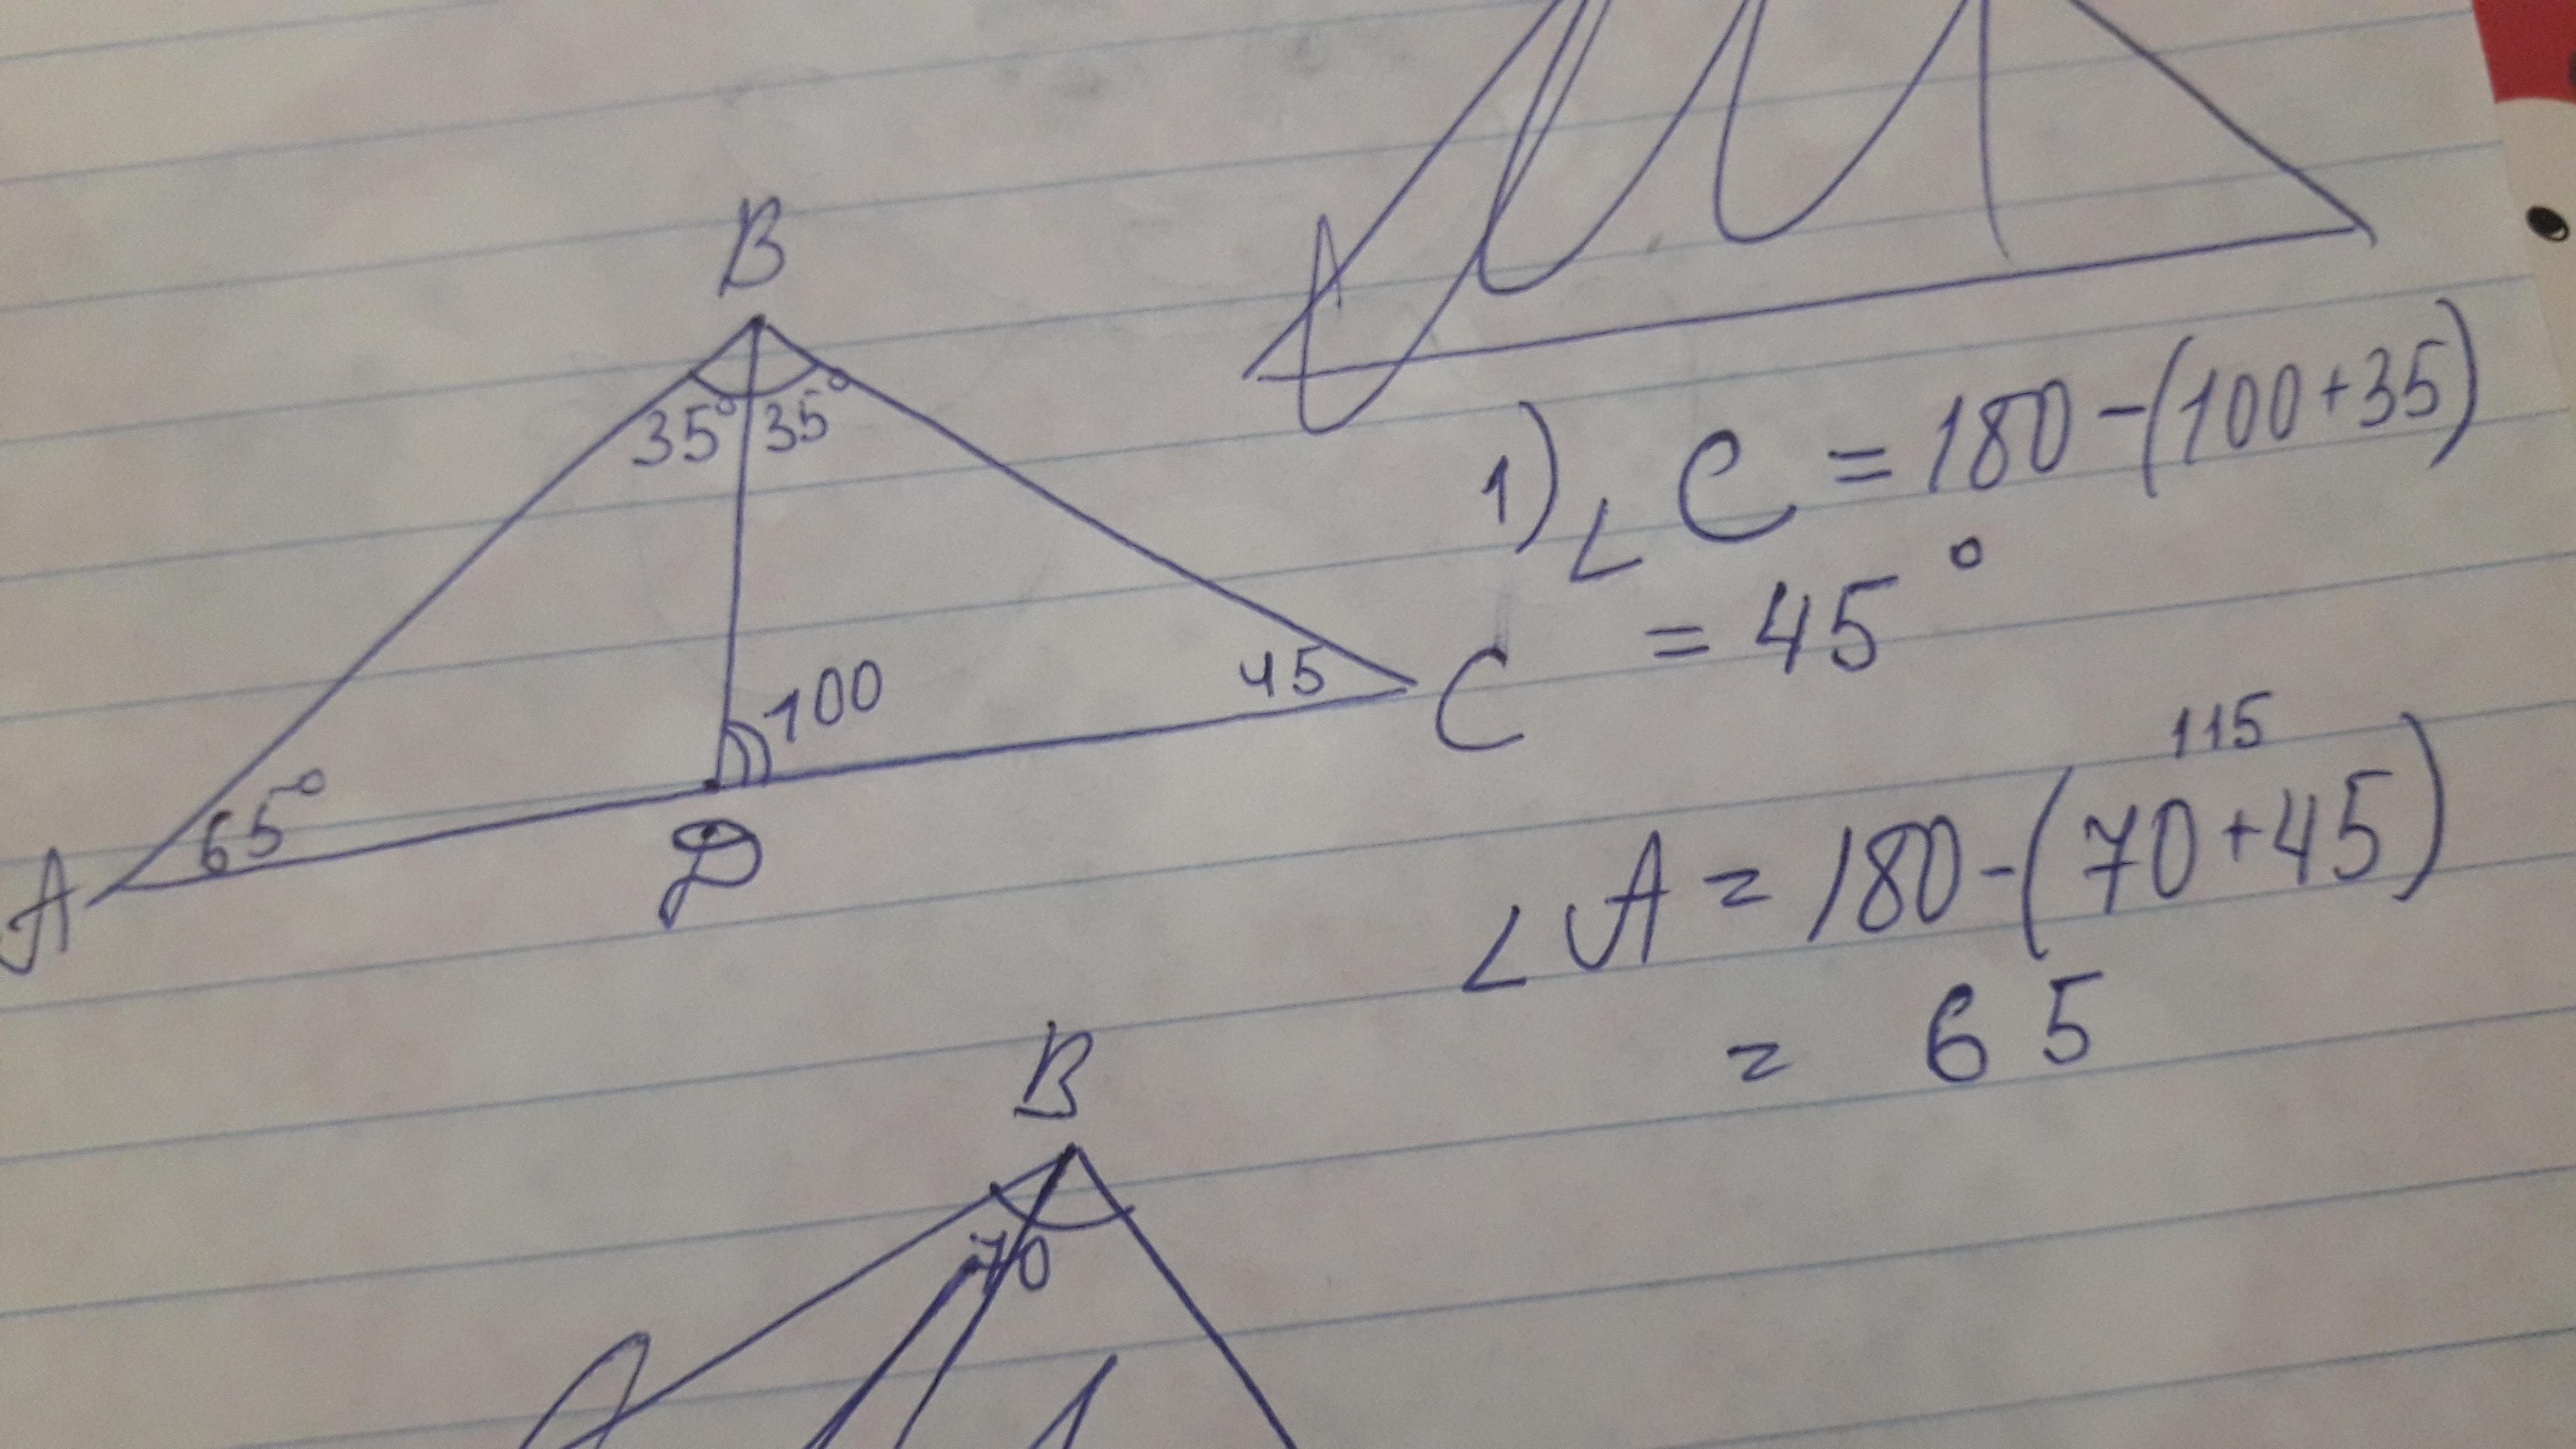 A
B
35° 35°
100
45
C
65°
A
D
1) ∠ C = 180 - (100 + 35)
= 45°
115
∠ A = 180 - (70 + 45)
= 65
B
70